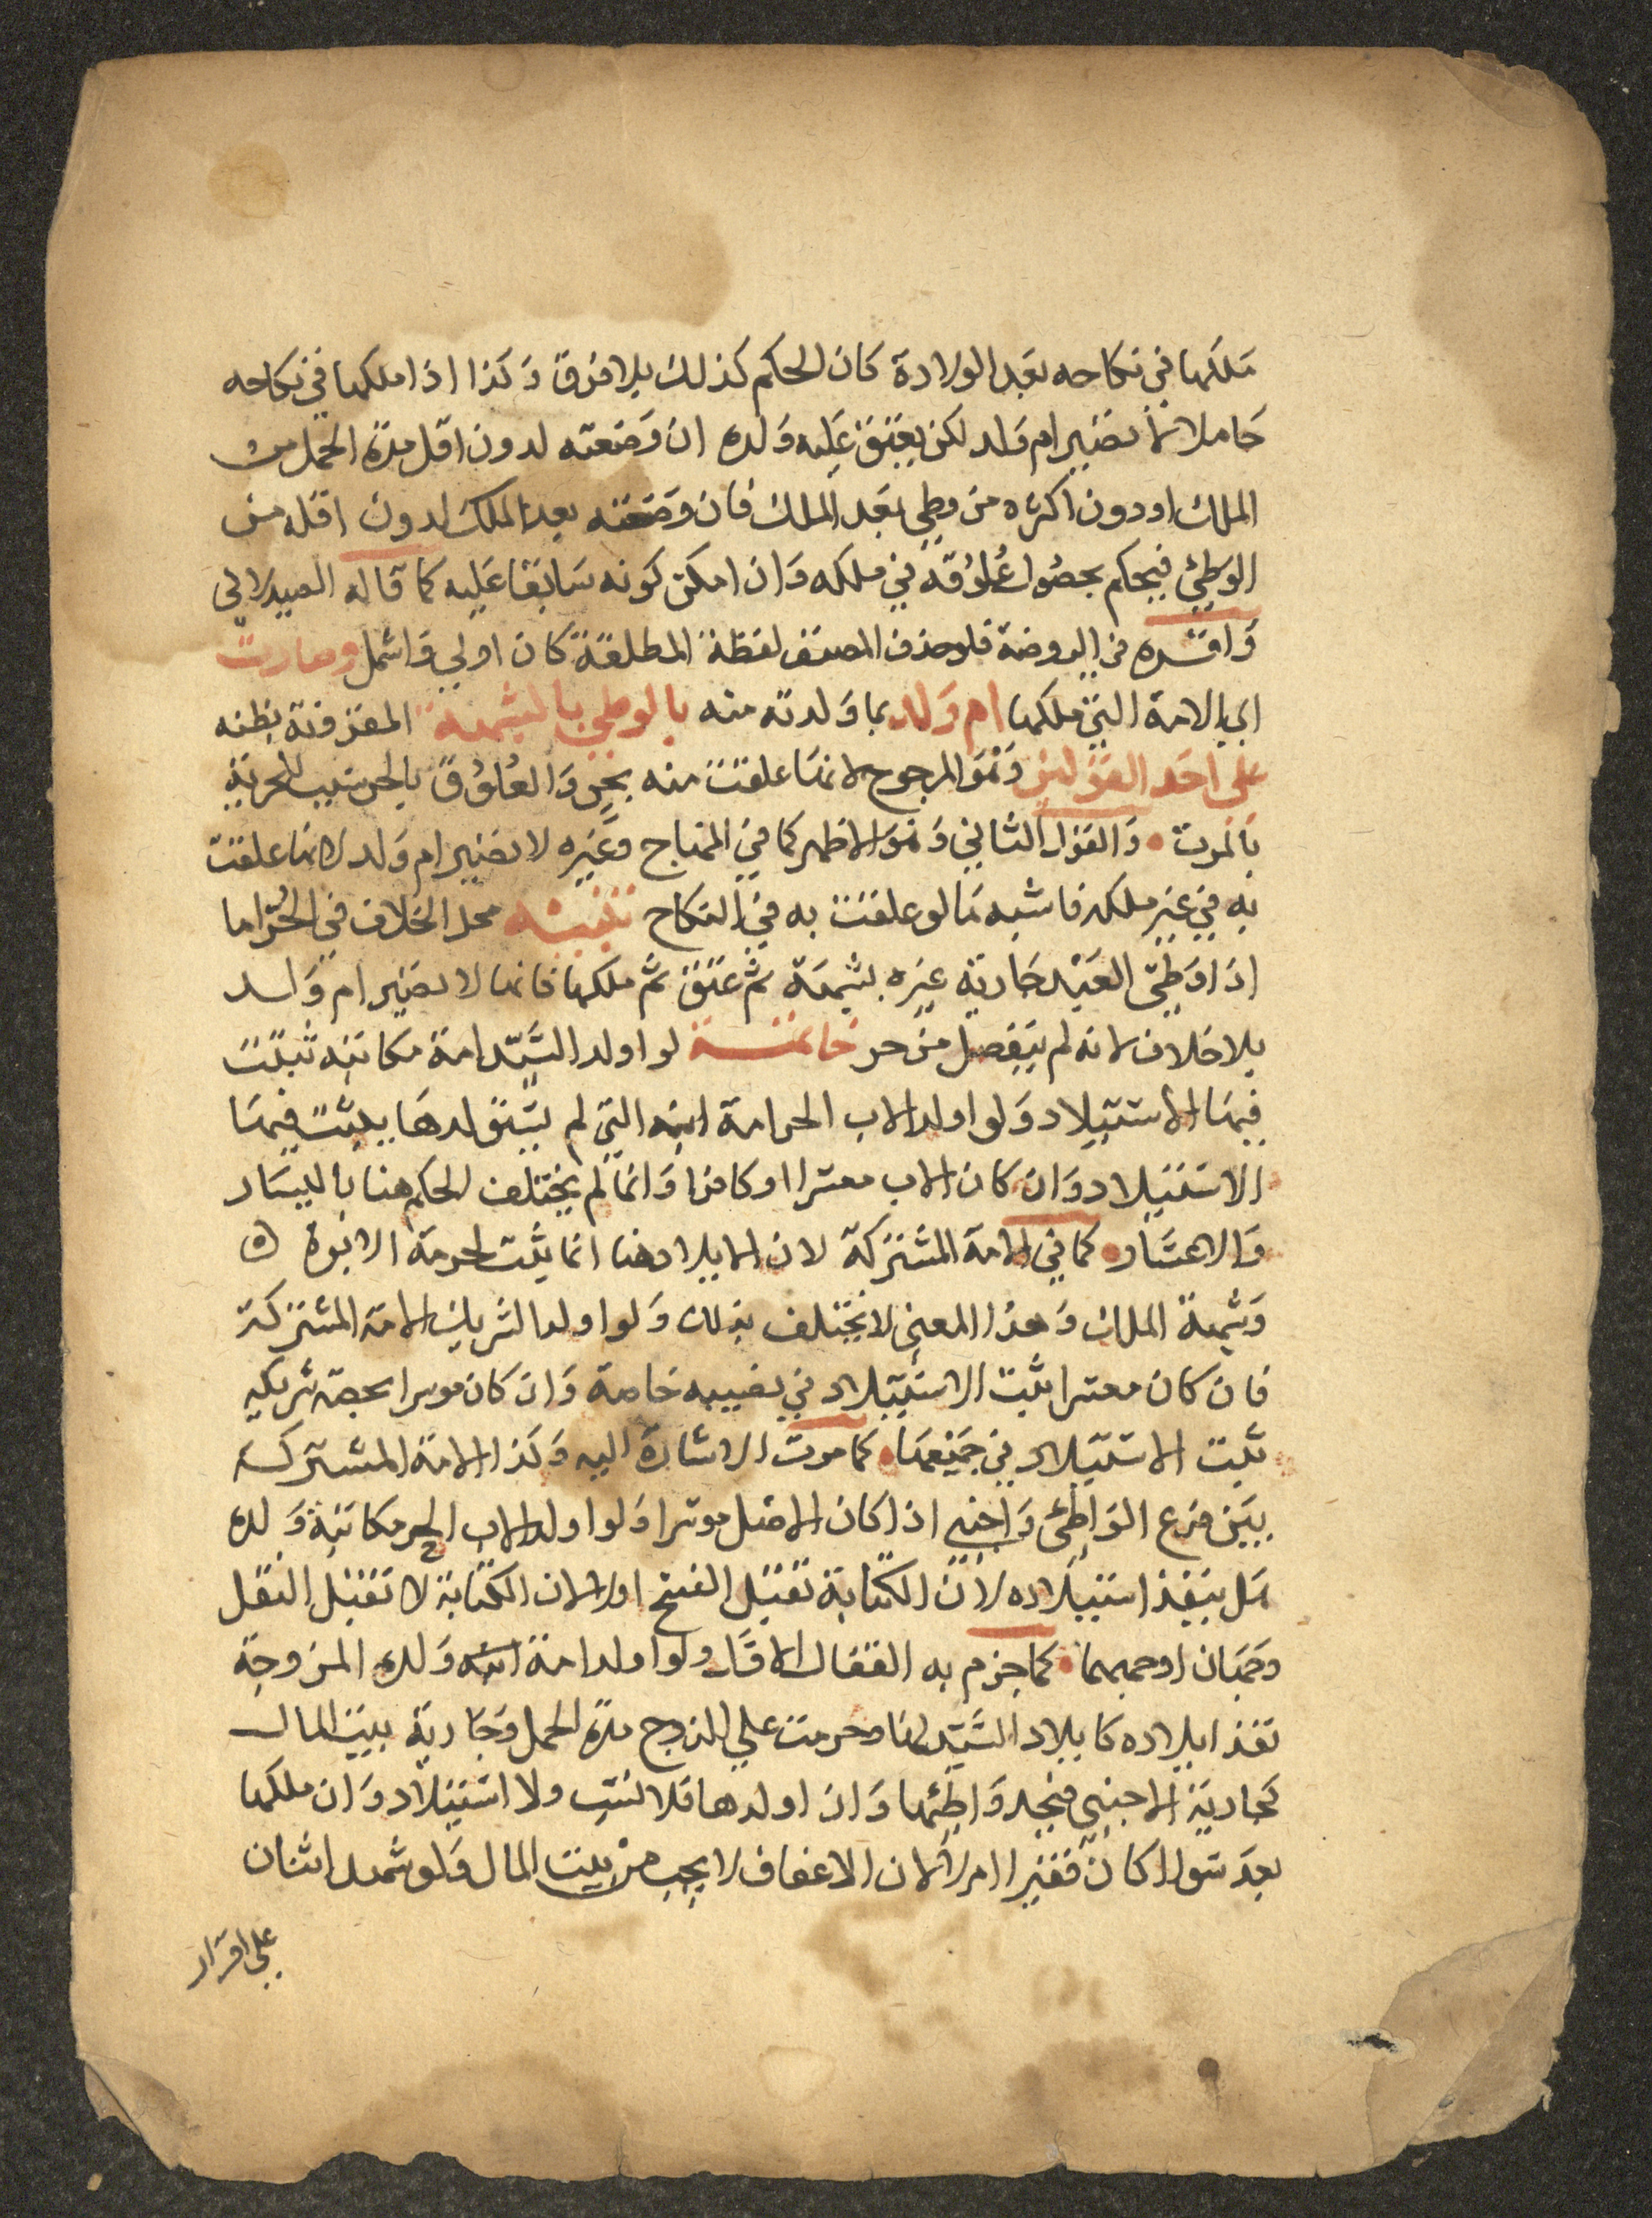 ملكها في نكاحه بعد الولادة كان الحكم كذلك بلا فرق وكذا اذا ملكها في نكاحه
حاملا لا تصير ام ولد لكن يعتق عليه ولده ان وضعته لدون اقل مدة الحمل من
الملك او دون اكثره من وطي بعد الملك فان وضعته بعد الملك لدون اقله من
الوطئ فيحكم بحصول علوقه في ملكه وان امكن كونه سابقا عليه كما قاله الصيدلاني
واقره في الروضة فلو حذف المصنف لفظة المطلقة كان اولي واشمل وصارت
اي الامة التي ملكها ام ولد بما ولدته منه بالوطي بالشبهة المقرونة بظنه
على احد القولين وهو المرجوح لانها علقت منه بحر والعلوق بالحر سبب للحرية
بالموت والقول الثاني وهو الاظهر كما في المنهاج وغيره لا تصير ام ولد لانها علقت
به في غير ملكه فاشبه ما لو علقت به في النكاح تنبيه محل الخلاف في الحر اما
اذا وطئ العبد جارية غيره بشبهة ثم عتق ثم ملكها فانها لا تصير ام ولد
بلا خلاف لانه لم ينفصل من حر خاتمة لو اولد السيد امة مكاتبه ثبت
فيها الاستيلاد ولو اولد الاب الحر امة ابنه التي لم يستولدها يثبت فيها
الاستيلاد وان كان الاب معسرا او كافرا وانما لم يختلف الحكم هنا باليسار
والاعسار كما في الامة المشتركة لان الايلاد هنا انما يثبت لحرمة الابوة ه
وشبهة الملك وهذا المعنى لا يختلف بذلك ولو اولد الشريك الامة المشتركة
فان كان معسرا ثبت الاستيلاد في نصيبه خاصة وان كان موسرا بحصة شريكه
ثبت الاستيلاد في جميعها كما مرت الاشارة اليه وكذا الامة المشتركة
بين فرع الواطئ واجنبي اذا كان الاصل موسرا ولو اولد الاب الحر مكاتبة ولده
هل ينفذ استيلاده لان الكتابة تقبل الفسخ او لا لان الكتابة لا تقبل النقل
وجهان اوجههما كما جزم به القفال الاول ولو اولد امة ولده المزوجة
نفذ ايلاده كايلاد السيد لها وحرمت علي الزوج مدة الحمل وجارية بيت المال
كجارية الاجنبي فيحد واطئها وان اولدها فلا نسب ولا استيلاد وان ملكها
بعد سوا كان فقيرا ام لا لان الاعفاف لا يجب من بيت المال ولو شهد اثنان
على اقرار